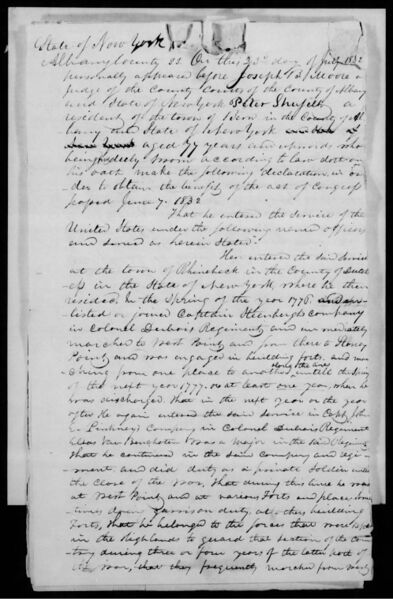 State of New York
Albany County ss On this 23d day of July 1832
personally appeared before Joseph
judge of the County Courts of the County of Albany
and State of New York Peter Shufelt a
resident of the town of Bern in the County of Al
bany and State of New York
aged 77 years and upwards who
being duly sworn according to law doth on
his oath make the following declaration in or
der to obtain the benefit of the act of Congress
passed June 7. 1832
That he entered the Service of the
United States under the following named officers
and served as herein stated.
He entered the said Service
at the town of Rhinebeck in the County of Dutch
ess in the State of New York where he then
resided in the Spring of the year 1776.
listed or joined Captain Company
in Colonel Dubois Regiment and immediately
marched to West Point and from there to Stoney
Point and was engaged in building forts, and mar
ching from one place to another along the until the Spring
of the next year 1777. or at least one year, when he
was discharged, that in the next year or the year
after he again entered the said service in Capt. John
Company in Colonel Dubois Regiment
was a Major in the said Regiment
that he continued in the same company and regi
ment, and did duty as a private Soldier until
the close of the War, that during this time he was
at West Point and at various Forts and places, some
times doing Garrison duty, at others building
Forts, that he belonged to the forces that were kept
in the Highlands to guard that section of the Coun
try during three or four years of the latter part of
the War, that they frequently marched from West